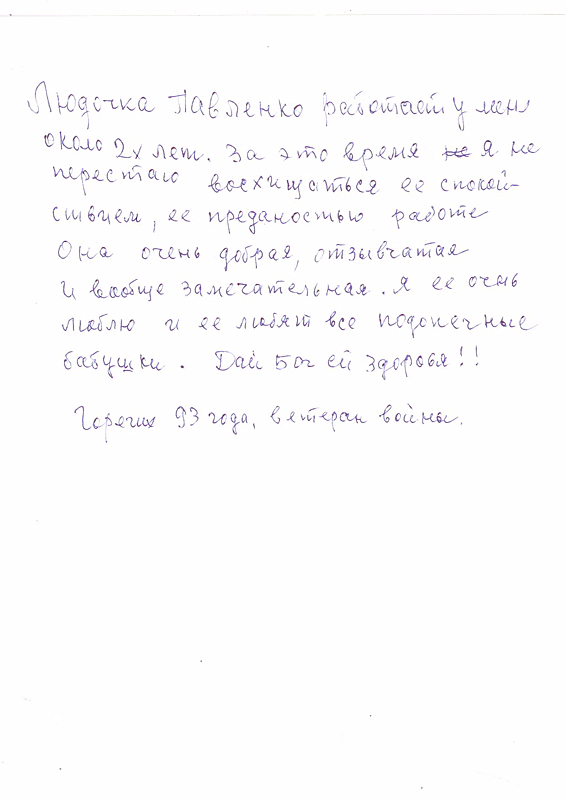 Людочка Павленко работает у меня
около 2х лет. За это время не я не
перестаю восхищаться ее спокой-
ствием, ее преданостью работе
Она очень добрая, отзывчатая
и вообще замечательная. Я ее очень
люблю и ее любят все подопечные
бабушки. Дай Бог ей здоровя!!
Горячих 93 года, ветеран войны.